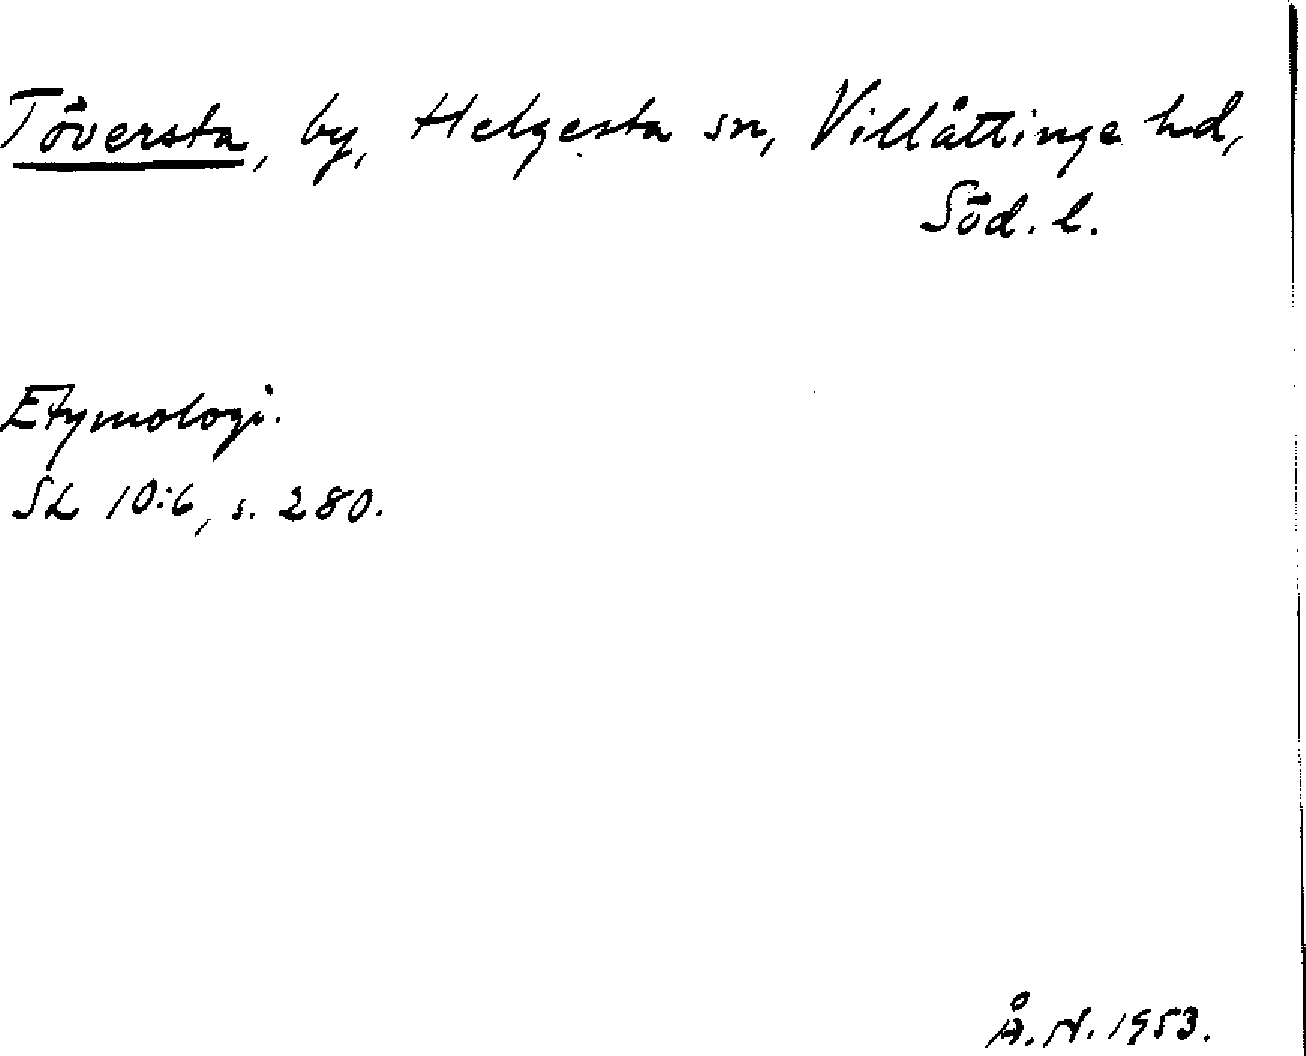 Töversta, by, Helgesta sn, Villåttinge hd,
Söd. l.
Etymologi.
SL 10:6, s. 280.
Å.N. 1953.